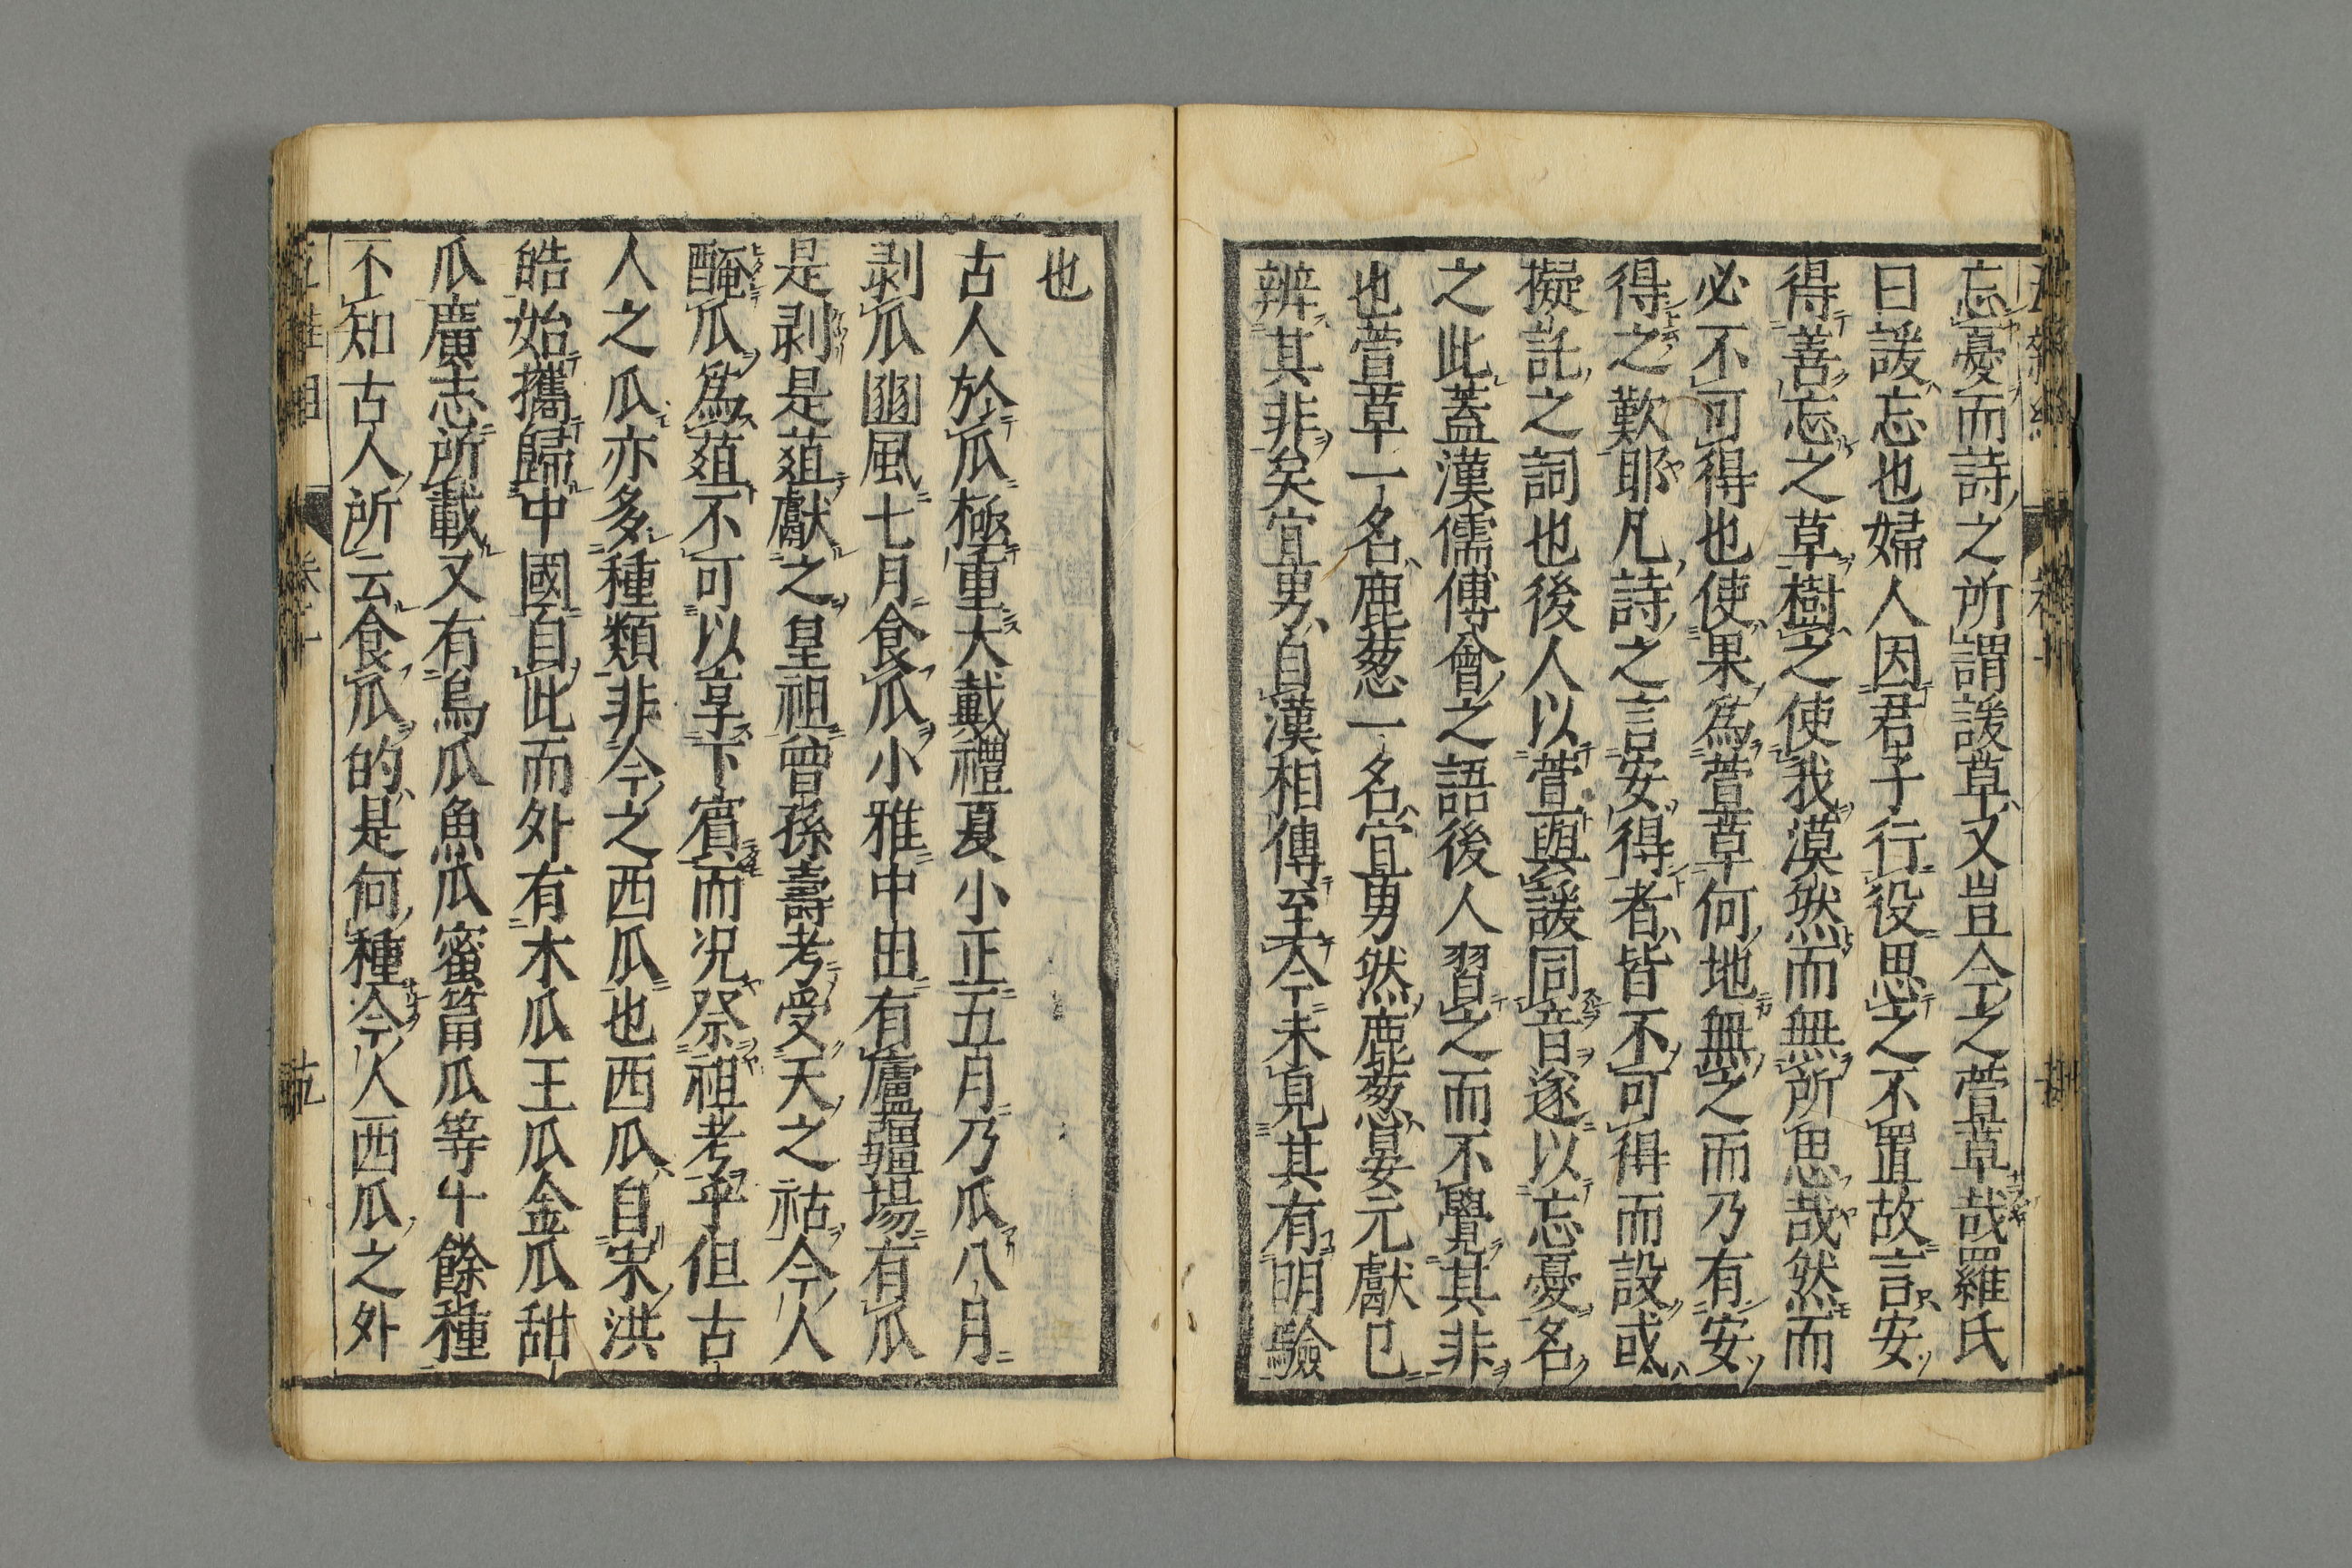 忘憂而詩之所謂諼草又豈今之萱草哉羅氏
曰諼忘也婦人因君子行役思之不置故言安
得善忘之草樹之使我漠然而無所思哉然而
必不可得也使果為萱草何地無之而乃有安
得之歎耶凡詩之言安得者皆不可得而設或
擬託之詞也後人以萱與諼同音遂以忘憂名
之此蓋漢儒傅會之語後人習之而不覺其非
也萱草一名鹿葱一名宜男然鹿葱晏元獻已
辨其非矣宜男自漢相傳至今未見其有明驗
也
古人於瓜極重大戴禮夏小正五月乃瓜八月
剥瓜豳風七月食瓜小雅中田有廬疆場有瓜
是剥是菹獻之皇祖曾孫壽考受天之祜今人
醃瓜為菹不可以享下賓而况祭祖考乎但古
人之瓜亦多種類非今之西瓜也西瓜自宋洪
皓始攜歸中國自此而外有木瓜王瓜金瓜甜
瓜廣志所載又有烏瓜魚瓜蜜筩瓜等十餘種
不知古人所云食瓜的是何種今人西瓜之外